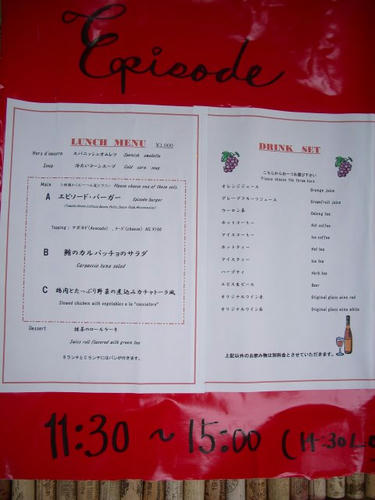 Episode
LUNCH MENU ¥1,000
Hors d'oeuvre スパニッシュオムレツ Spanish omelette
Soup 冷たいコーンスープ Cold corn soup
Main Please choose one of these sets.
A エピソード・バーガー Episode burger
Topping : アボカド(Avocado) , チーズ(cheese) 各¥100
B 鮪のカルパッチョのサラダ
Carpaccio tuna salad
C 鶏肉とたっぷり野菜の煮込みカチャトーラ風
Stewed chicken with vegetables a la "cacciatora"
Dessert 抹茶のロールケーキ
Swiss roll flavored with green tea
BランチとCランチにはパンが付きます。
DRINK SET
こちらから一つお選び下さい
Please choose the torse here
オレンジジュース Orange juice
グレープフルーツジュース Grapefruit juice
ウーロン茶 Oolong tea
ホットコーヒー Hot coffee
アイスコーヒー Ice coffee
ホットティー Hot tea
アイスティー Ice tea
ハーブティ Herb tea
ヱビス生ビール Beer
オリジナルワイン赤 Original glass wine red
オリジナルワイン白 Original glass wine white
上記以外のお飲み物は別料金とさせていただきます。
11:30 ~ 15:00 (14:30 L.O